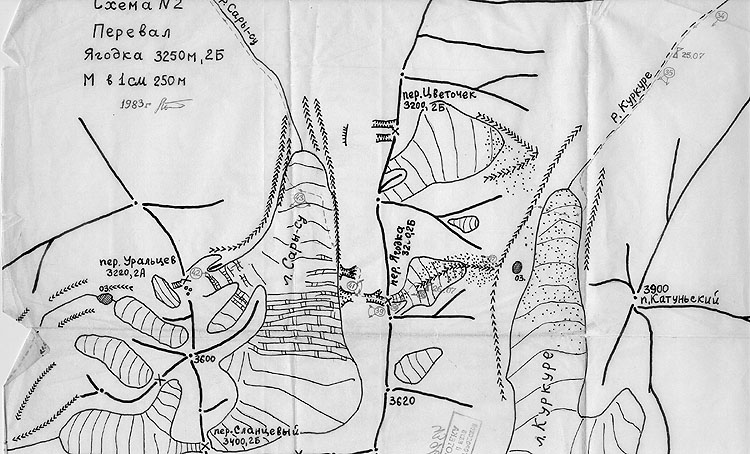 Схема N2
Перевал
Ягодка 3250м, 2Б
М в 1см 250м
1983г
р. Сары-су
пер. Цветочек
3200, 2Б
Р. Куркуре
34
35
25.07
г. Сары-су
пер. Уральцев
3220, 2А
03.
42
пер. Ягодка
03.
3900
п. Катуньский
3600
3620
л. Куркуре
пер. Сланцевый
3400, 2Б